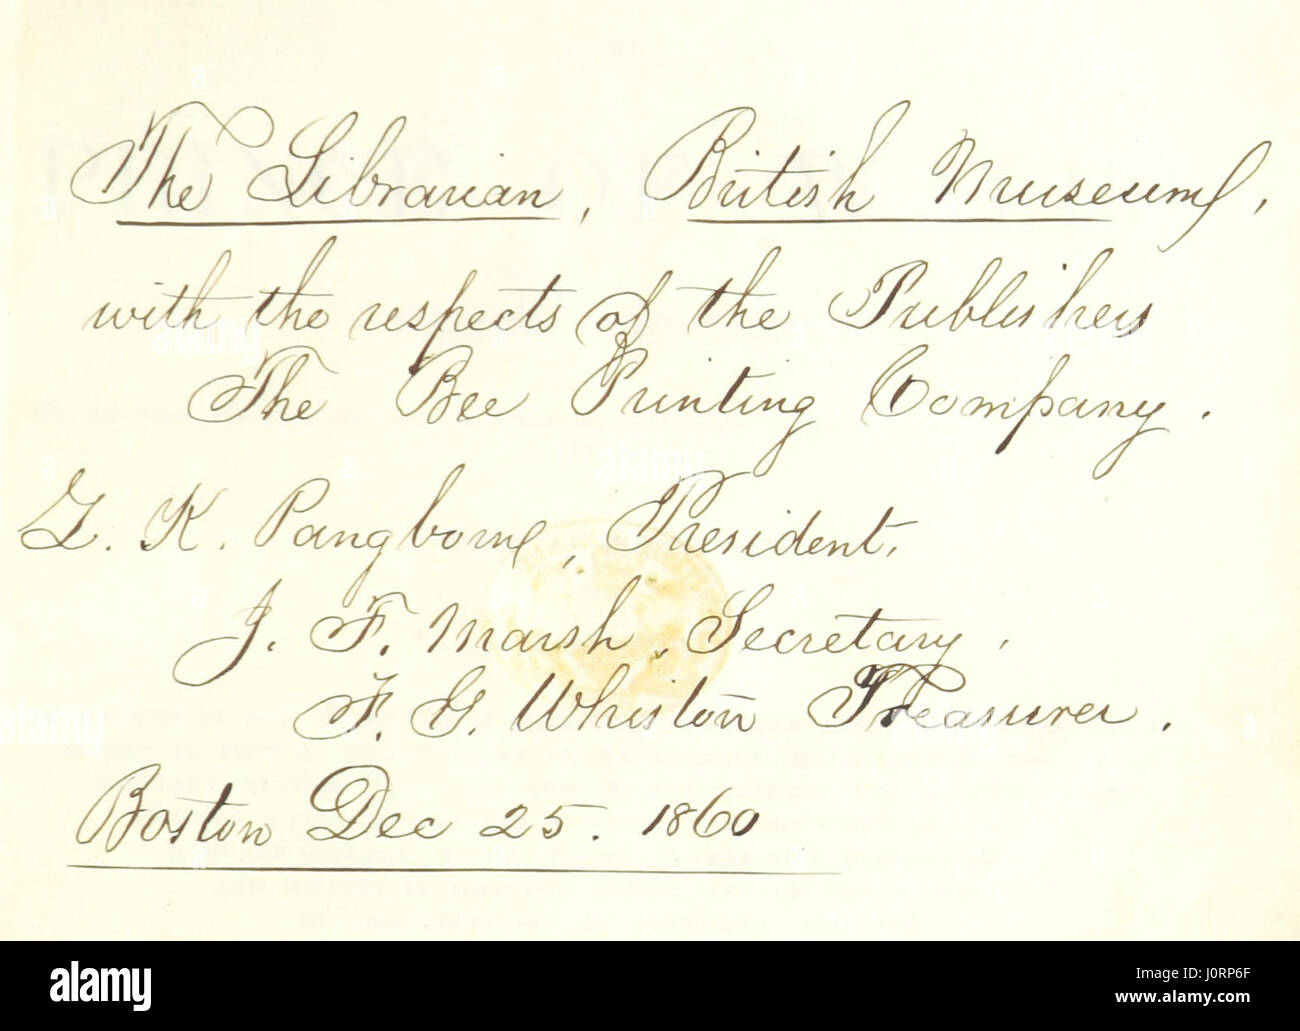 The Librarian, British Museum,
with the respects of the Publishers
The Bee Printing Company.
G. K. Pangborn, President.
J. F. Marsh, Secretary.
F. G. Whiston Treasurer.
Boston Dec 25. 1860
alamy
Image ID: J0RP6F
www.alamy.com